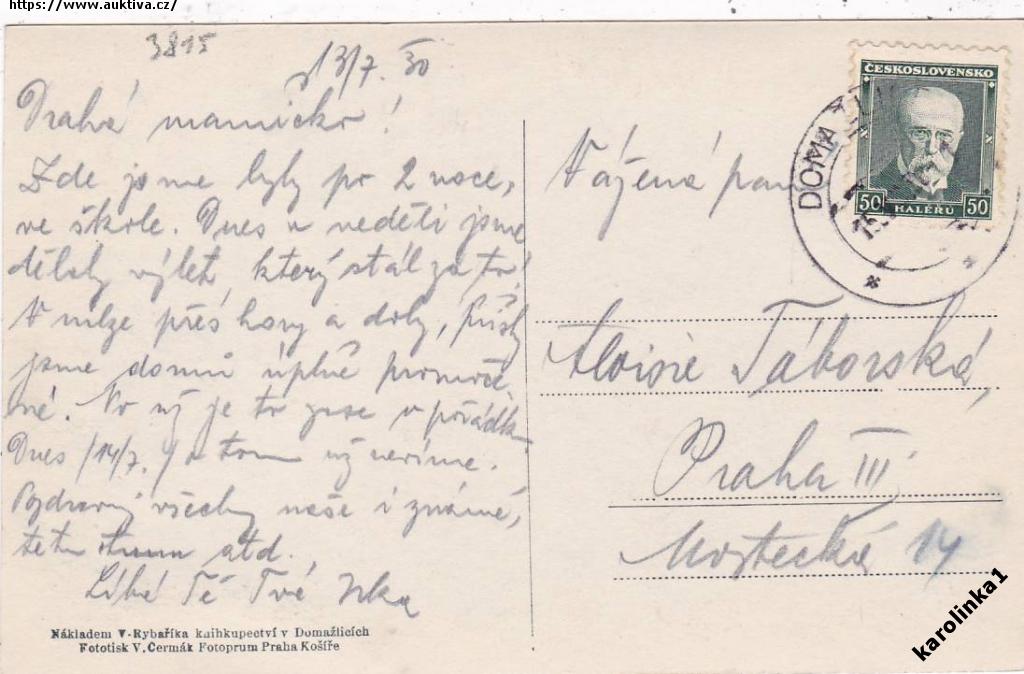 https://www.auktiva.cz/
3815
13/7. 30
Drahá mamičko!
Zde jsme byly po 2 noce,
ve škole. Dnes v neděli jsme
dělaly výlet, který stál za to!
V mlze přes hory a doly, přišly
jsme domů úplně promoče
né. No už je to zase v pořádku
Dnes /14/7./ o tom už nevíme.
Pozdravuj všechny naše i známé,
tetu atd.
Líbá Tě Tvá
Nákladem V. Rybaříka knihkupectví v Domažlicích
Fototisk V. Čermák Fotoprum Praha Košíře
Vážená paní
Aloisie Táborská,
Praha III
Mostecká 14
ČESKOSLOVENSKO
50 HALÉŘŮ 50
DOMAŽLICE
karolinka1